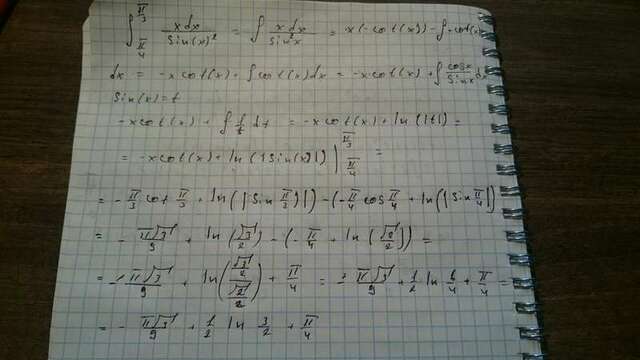 ∫_{π/4}^{π/3} x dx / sin(x)² = ∫ x dx / sin²x = x(-cot(x)) - ∫ -cot(x)
dx = -x cot(x) + ∫ cot(x) dx = -x cot(x) + ∫ cosx/sinx dx
Sin(x)=t
-x cot(x) + ∫ 1/t dt = -x cot(x) + ln(|t|) =
= -x cot(x) + ln(|sin(x)|) |_{π/4}^{π/3} =
= -π/3 cot π/3 + ln(|sin π/3|) - (-π/4 cos π/4 + ln(|sin π/4|)
= -π√3/9 + ln(√3/2) - (-π/4 + ln(√2/2)) =
= -π√3/9 + ln((√3/2)/(√2/2)) + π/4 = -π√3/9 + 1/2 ln 6/4 + π/4 =
= -π√3/9 + 1/2 ln 3/2 + π/4